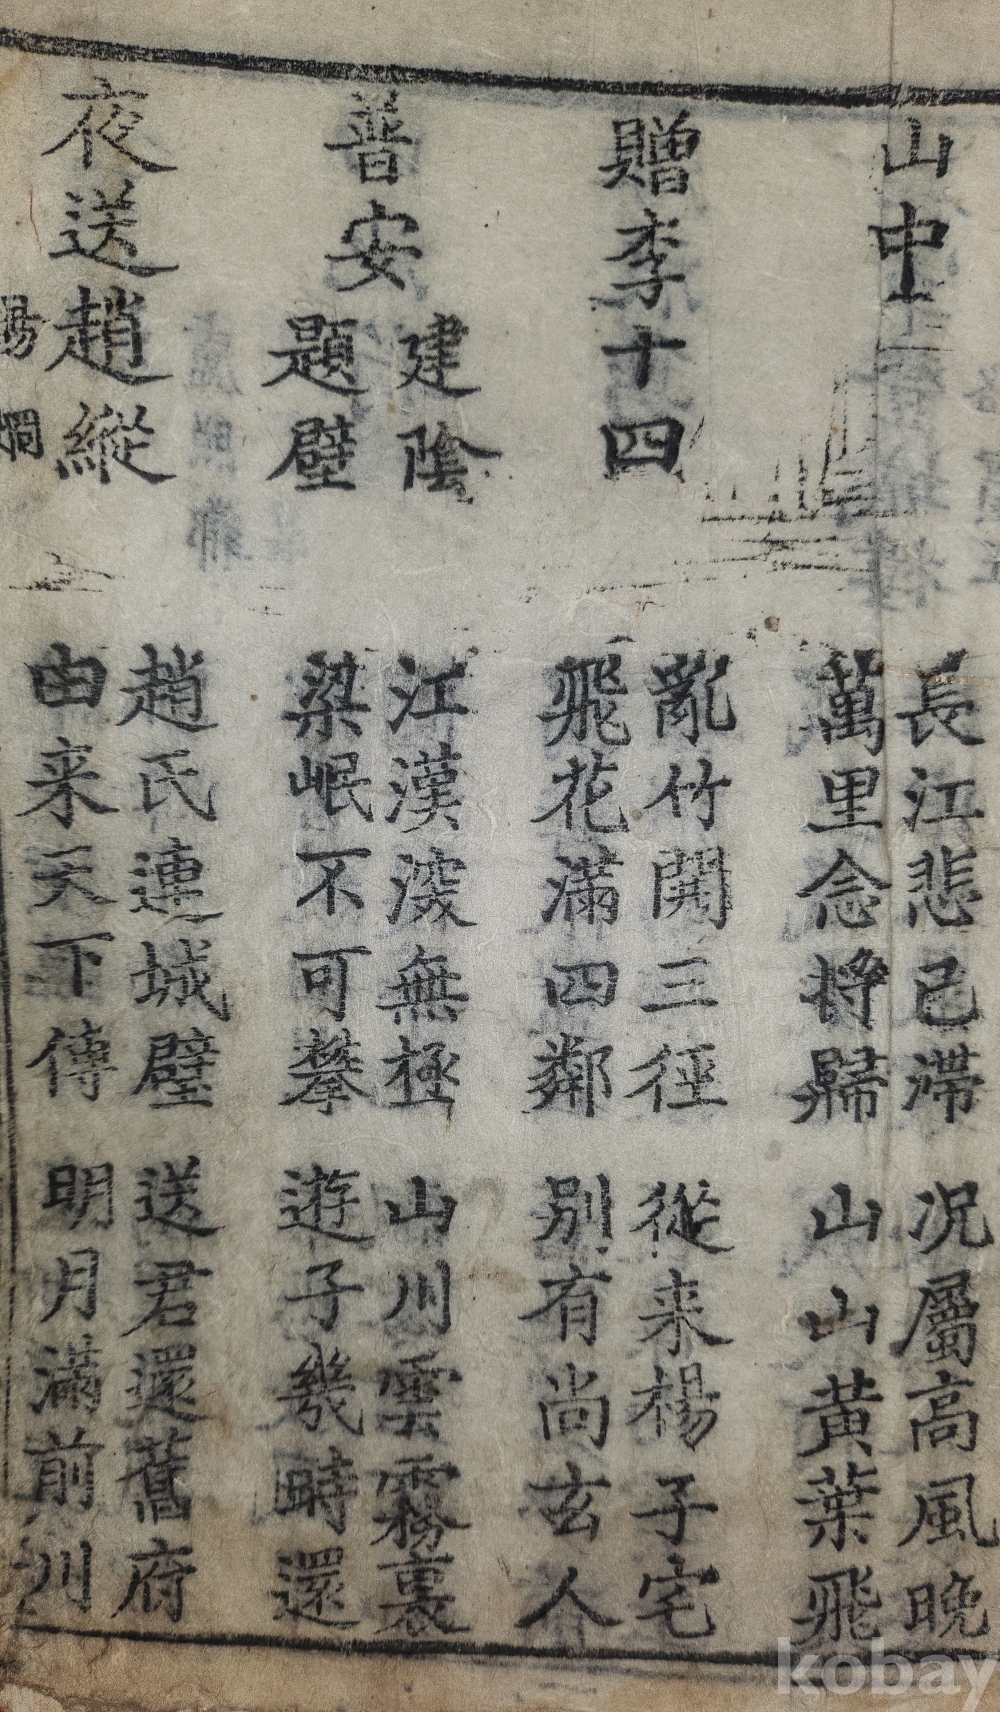 山中
長江悲已滯　況屬高風晩
萬里念將歸　山山黃葉飛
贈李十四
亂竹開三徑　從来楊子宅
飛花滿四鄰　別有尚玄人
普安建陰題壁
江漢深無極　山川雲霧裏
梁岷不可攀　遊子幾時還
夜送趙縱
趙氏連城璧　送君還舊府
由来天下傳　明月滿前川
楊烱
kobay